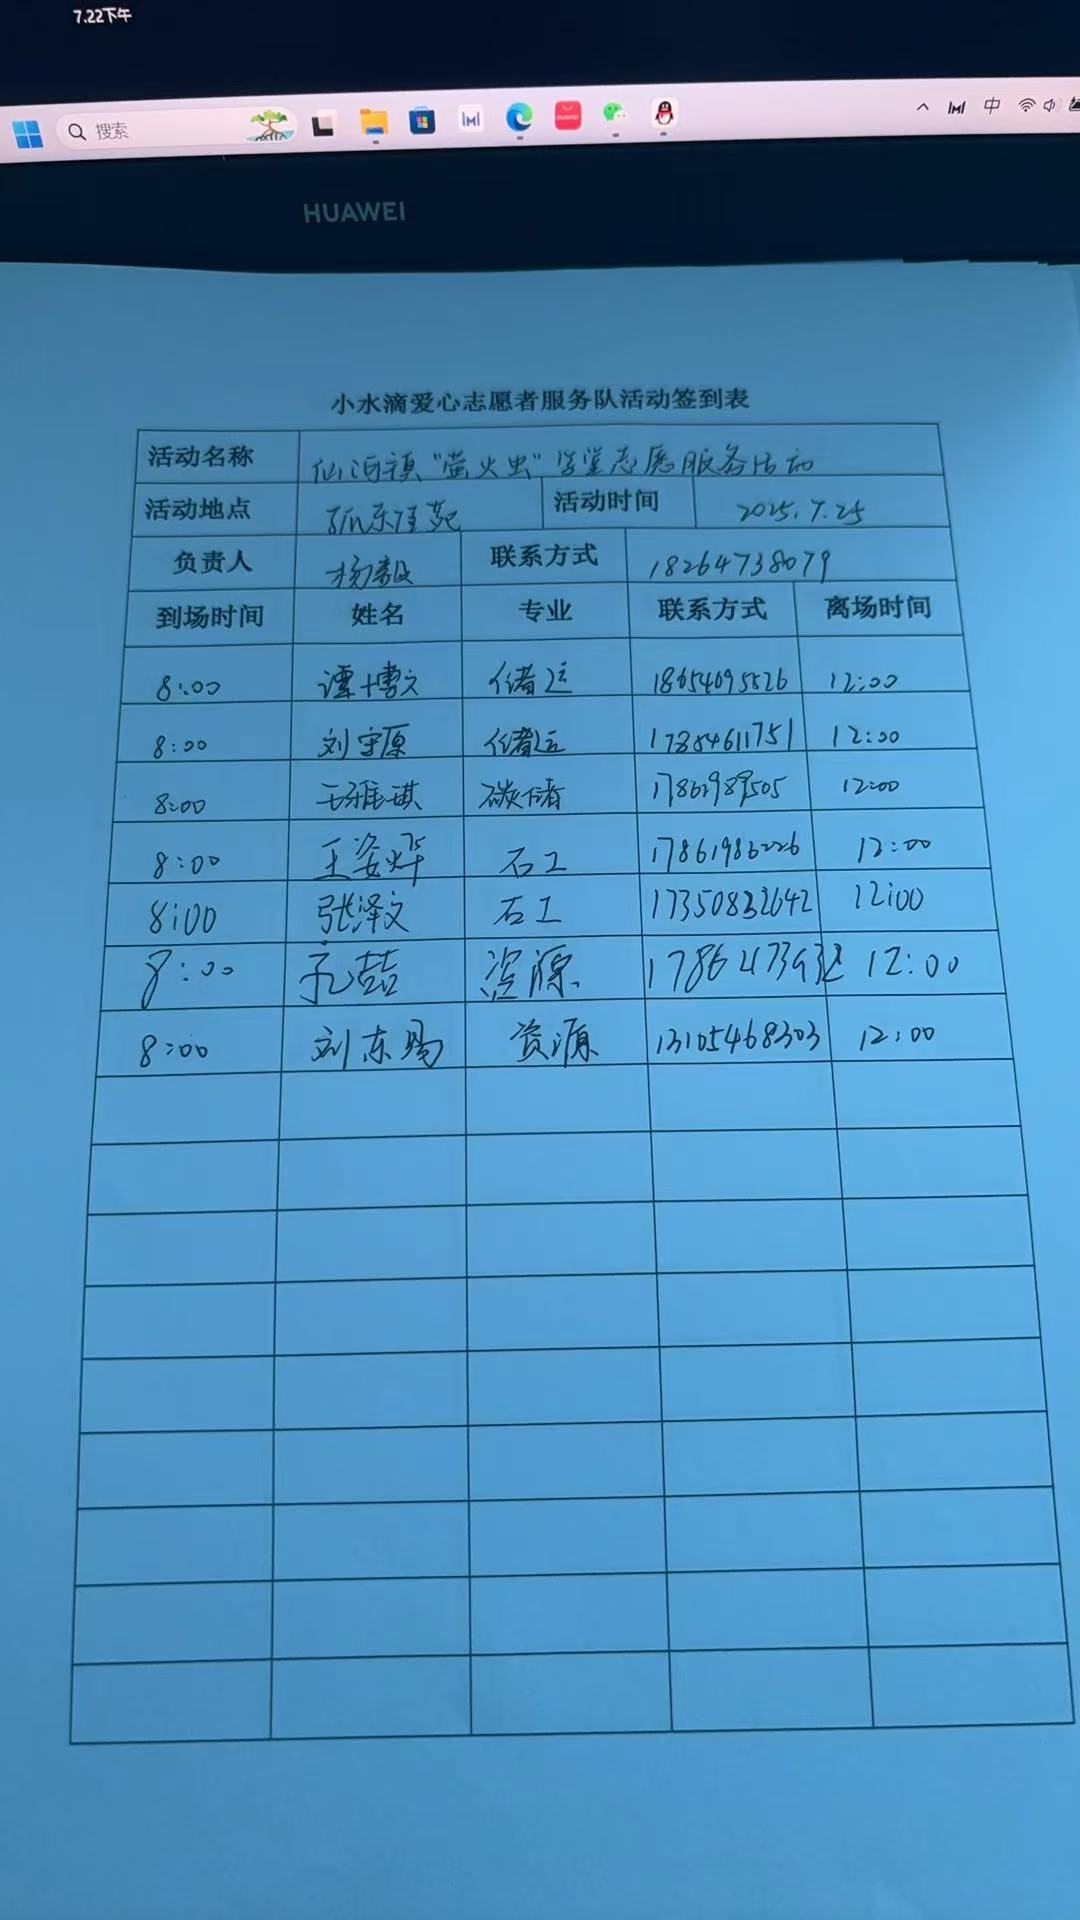 7.22下午
搜索
中
HUAWEI
小水滴爱心志愿者服务队活动签到表
活动名称 仙河镇“萤火虫”学堂志愿服务活动
活动地点 孤东佳苑 活动时间 2025.7.25
负责人 杨毅 联系方式 18264738079
到场时间 姓名 专业 联系方式 离场时间
8:00 谭博文 储运 18654695526 12:00
8:00 刘宇原 储运 17854611751 12:00
8:00 王雅琪 碳储 12:00
8:00 王姿烨 石工 17861986226 12:00
8:00 张泽文 石工 17350832642 12:00
8:00 孔喆 资源 12:00
8:00 刘东 资源 13105468303 12:00